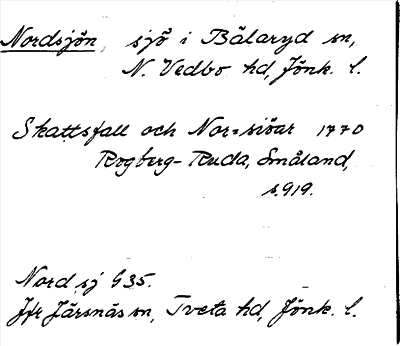 Nordsjön, sjö i Bälaryd sn,
N. Vedbo hd, Jönk. l.
Skattsfall och Nor=siöar 1770
Rogberg-Ruda, Småland,
s. 919.
Nord sj G35.
Jfr Järsnäs sn, Tveta hd, Jönk. l.